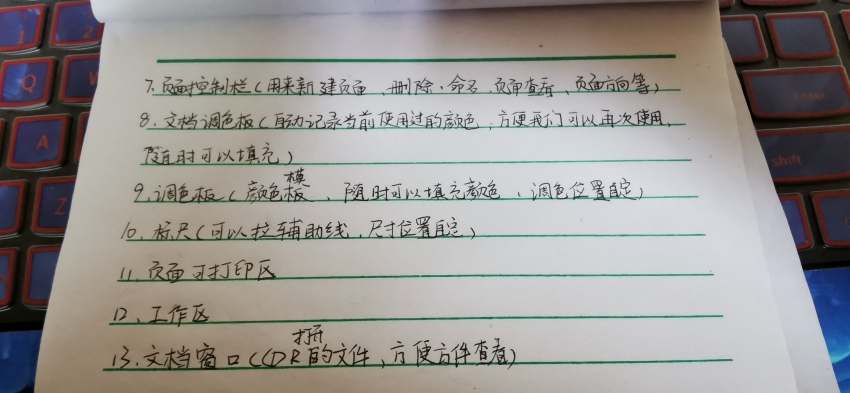 7.页面控制栏(用来新建页面、删除、命名、页面查看、页面方向等)
8、文档调色板(自动记录当前使用过的颜色,方便我们可以再次使用,
随时可以填充)
9、调色板(颜色模板、随时可以填充颜色、调色位置自定)
10、标尺(可以拉辅助线、尺寸位置自定)
11、页面可打印区
12、工作区
13.文档窗口(CDR打开的文件,方便方件查看)
Q
Z
Enter
shift